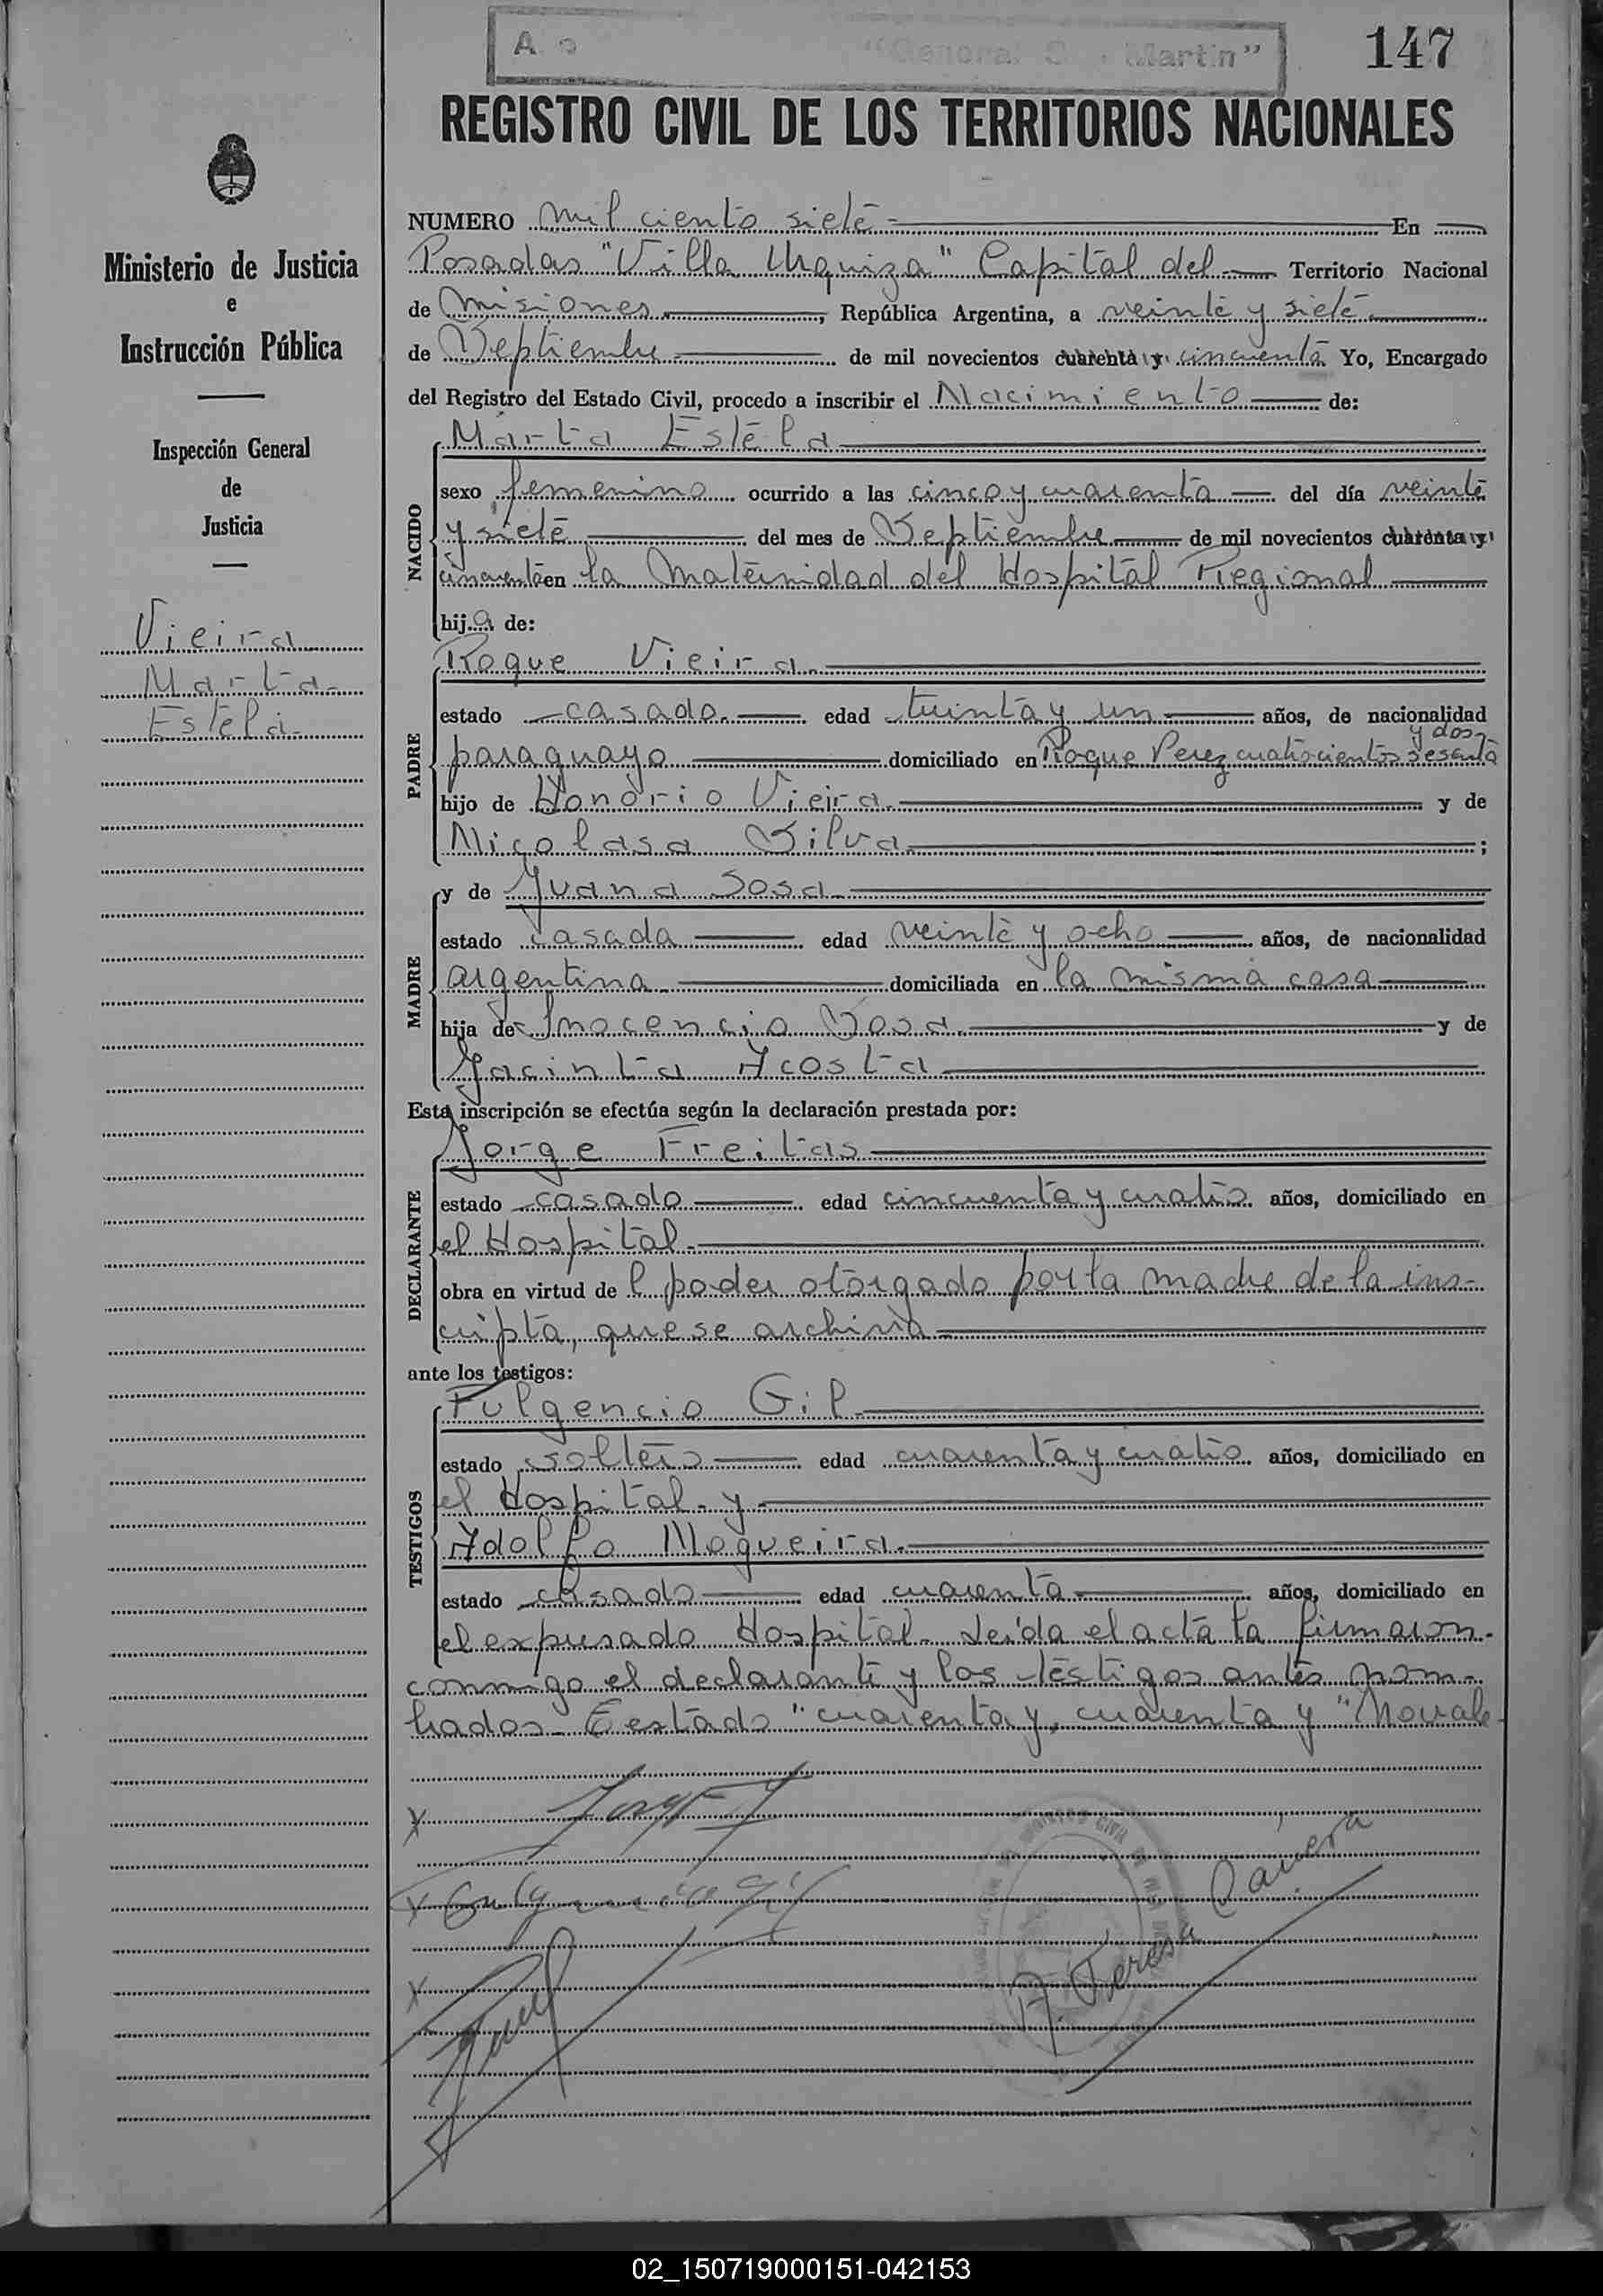 A o "General S Martin"
147
REGISTRO CIVIL DE LOS TERRITORIOS NACIONALES
Ministerio de Justicia
e
Instrucción Pública
Inspección General
de
Justicia
Vieira
Marta
Estela
NUMERO mil ciento siete En
Posadas "Villa Urquiza" Capital del Territorio Nacional
de Misiones, República Argentina, a veinte y siete
de Septiembre de mil novecientos cuarenta y cincuenta Yo, Encargado
del Registro del Estado Civil, procedo a inscribir el Nacimiento de:
NACIDO
Marta Estela
sexo femenino ocurrido a las cinco y cuarenta del día veinte
y siete del mes de Septiembre de mil novecientos cuarenta y
cincuenta en la Maternidad del Hospital Regional
hija de:
PADRE
Roque Vieira
estado casado edad treinta y un años, de nacionalidad
y dos
paraguayo domiciliado en Roque Perez cuatrocientos sesenta
hijo de Honorio Vieira y de
Nicolasa Silva;
MADRE
y de Juana Sosa
estado casada edad veinte y ocho años, de nacionalidad
argentina domiciliada en la misma casa
hija de Inocencio Sosa y de
Jacinta Acosta
Esta inscripción se efectúa según la declaración prestada por:
DECLARANTE
Jorge Freitas
estado casado edad cincuenta y cuatro años, domiciliado en
el Hospital
obra en virtud de l poder otorgado por la madre de la ins-
cripta, que se archiva
ante los testigos:
TESTIGOS
Fulgencio Gil
estado soltero edad cuarenta y cuatro años, domiciliado en
el Hospital y
Adolfo Nogueira
estado casado edad cuarenta años, domiciliado en
el expresado Hospital. Leída el acta la firmaron
conmigo el declarante y los testigos antes nom-
brados. E estado "cuarenta y, cuarenta y" No vale
Fulgencio Gil
A. Teresa
02_150719000151-042153